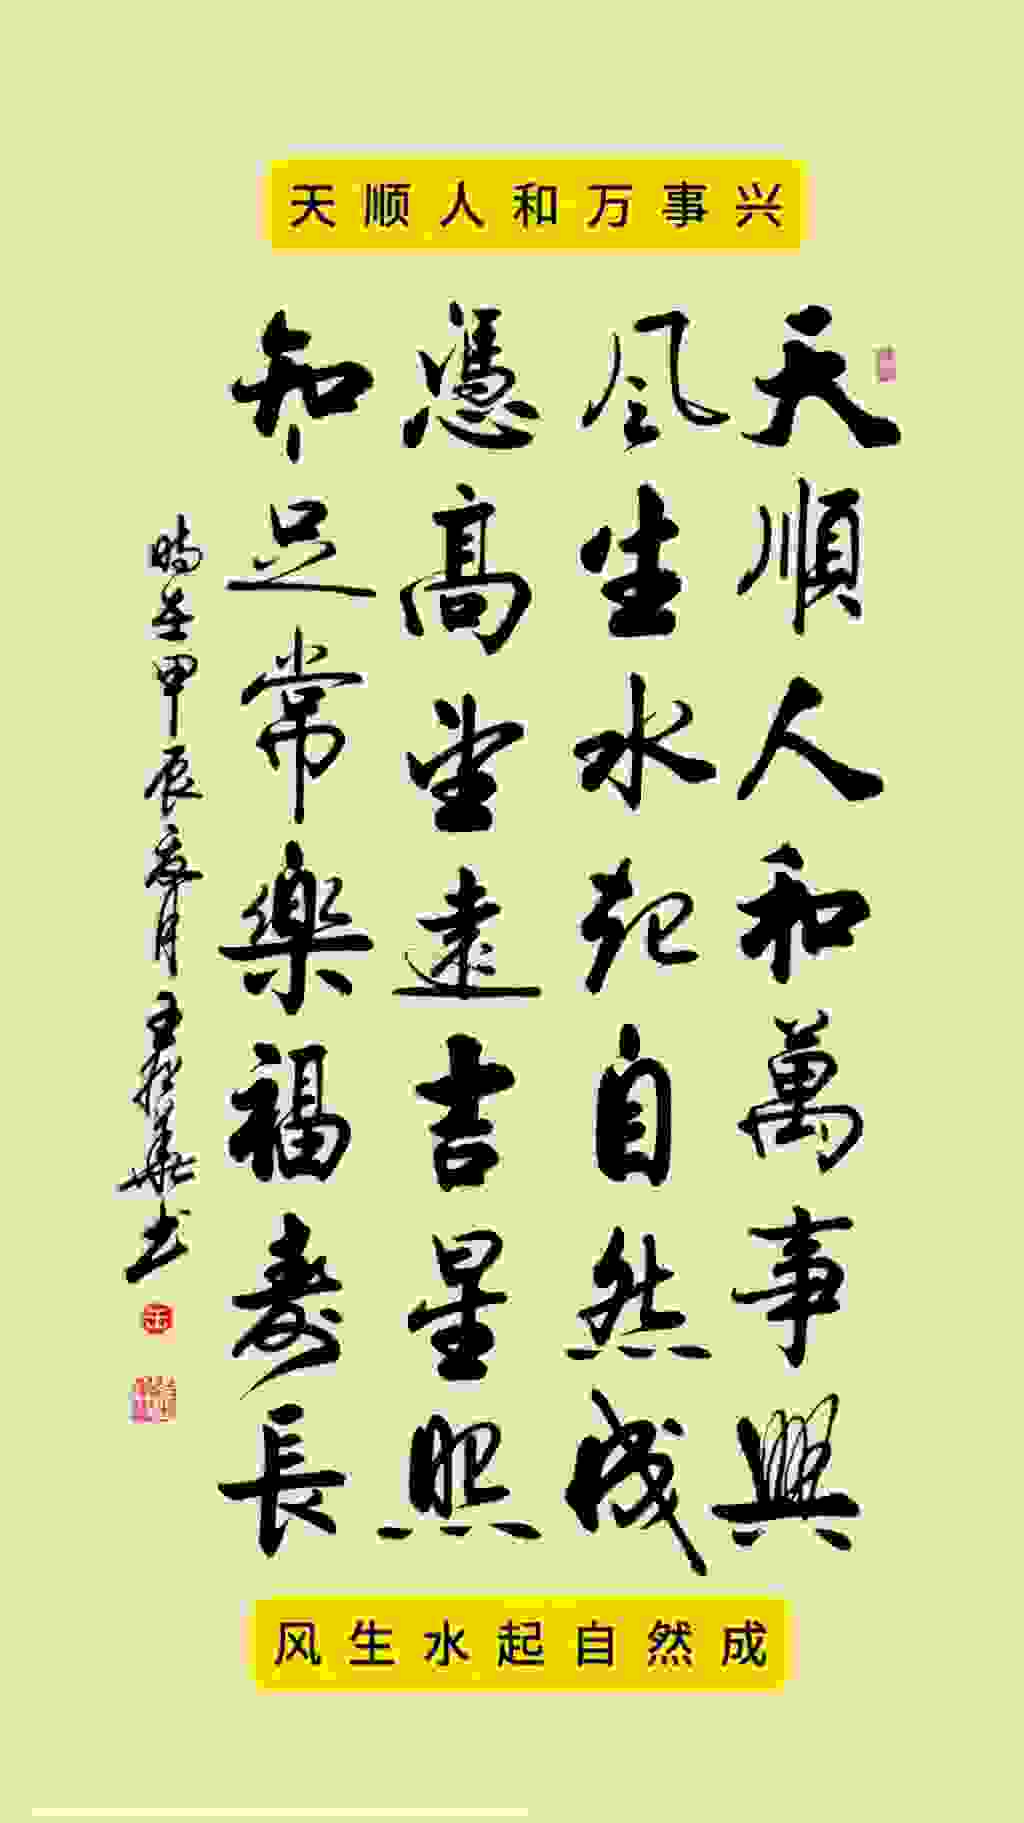 天顺人和万事兴
天順人和萬事興
風生水起自然成
憑高望遠吉星照
知足常樂福壽長
時在甲辰年月王
書
风生水起自然成